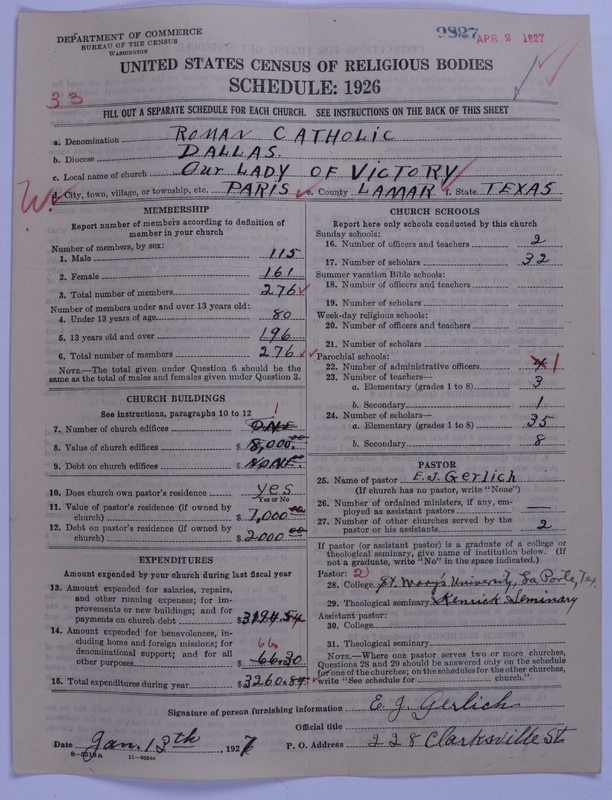 DEPARTMENT OF COMMERCE
BUREAU OF THE CENSUS
WASHINGTON
9827 APR 2 1927
UNITED STATES CENSUS OF RELIGIOUS BODIES
SCHEDULE: 1926
33
FILL OUT A SEPARATE SCHEDULE FOR EACH CHURCH. SEE INSTRUCTIONS ON THE BACK OF THIS SHEET
a. Denomination ROMAN CATHOLIC
b. Diocese DALLAS.
c. Local name of church OUR LADY OF VICTORY
d. City, town, village, or township, etc. PARIS e. County LAMAR f. State TEXAS
MEMBERSHIP
Report number of members according to definition of
member in your church
Number of members, by sex:
1. Male 115
2. Female 161
3. Total number of members 276
Number of members under and over 13 years old:
4. Under 13 years of age 80
5. 13 years old and over 196
6. Total number of members 276
NOTE.—The total given under Question 6 should be
same as the total of males and females given under Question 3.
CHURCH BUILDINGS
See instructions, paragraphs 10 to 12
7. Number of church edifices ONE 1
8. Value of church edifices $ 8,000.00
9. Debt on church edifices $ NONE.
10. Does church own pastor's residence yes
Yes or No
11. Value of pastor's residence (if owned by
church) $ 7,000.00
12. Debt on pastor's residence (if owned by
church) $ 2000.00
EXPENDITURES
Amount expended by your church during last fiscal year
13. Amount expended for salaries, repairs,
and other running expenses; for im-
provements or new buildings; and for
payments on church debt $ 3194.54
14. Amount expended for benevolences, in-
cluding home and foreign missions; for
denominational support; and for all
other purposes $ 66.30
66
15. Total expenditures during year $ 3260.84
CHURCH SCHOOLS
Report here only schools conducted by this church
Sunday schools:
16. Number of officers and teachers 2
17. Number of scholars 32
Summer vacation Bible schools:
18. Number of officers and teachers
19. Number of scholars
Week-day religious schools:
20. Number of officers and teachers
21. Number of scholars
Parochial schools:
22. Number of administrative officers 4 1
23. Number of teachers—
a. Elementary (grades 1 to 8) 3
b. Secondary 1
24. Number of scholars—
a. Elementary (grades 1 to 8) 35
b. Secondary 8
PASTOR
25. Name of pastor E. J. Gerlich
(If church has no pastor, write "None")
26. Number of ordained ministers, if any, em-
ployed as assistant pastors —
27. Number of other churches served by the
pastor or his assistants 2
If pastor (or assistant pastor) is a graduate of a college or
theological seminary, give name of institution below. (If
not a graduate, write "No" in the space indicated.)
Pastor: 2
28. College St. Mary's University, La Porte, Tex.
29. Theological seminary Kenrick Seminary
Assistant pastor:
30. College
31. Theological seminary
NOTE.—Where one pastor serves two or more churches,
Questions 28 and 29 should be answered only on the schedule
for one of the churches; on the schedules for the other churches,
write "See schedule for church."
Signature of person furnishing information E. J. Gerlich
Official title
Date Jan. 13th, 1927 P. O. Address 228 Clarksville St.